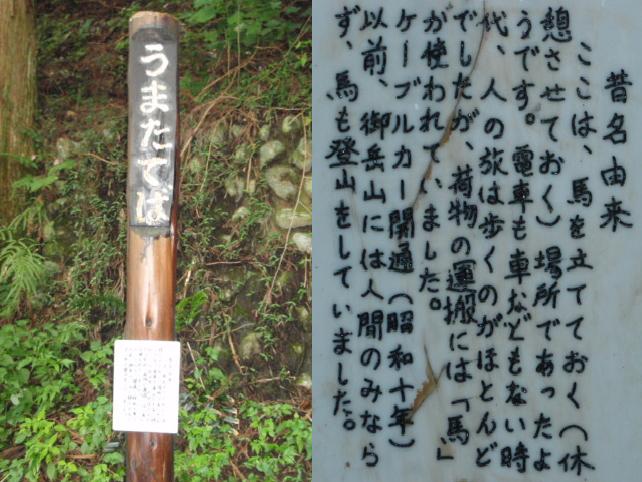 うまたては
昔名由来
ここは、馬を立てておく（休
憩させておく）場所であったよ
うです。電車も車などもない時
代、人の旅は歩くのがほとんど
でしたが、荷物の運搬には「馬」
が使われていました。
ケーブルカー開通（昭和十年）
以前、御岳山には人間のみなら
ず、馬も登山をしていました。